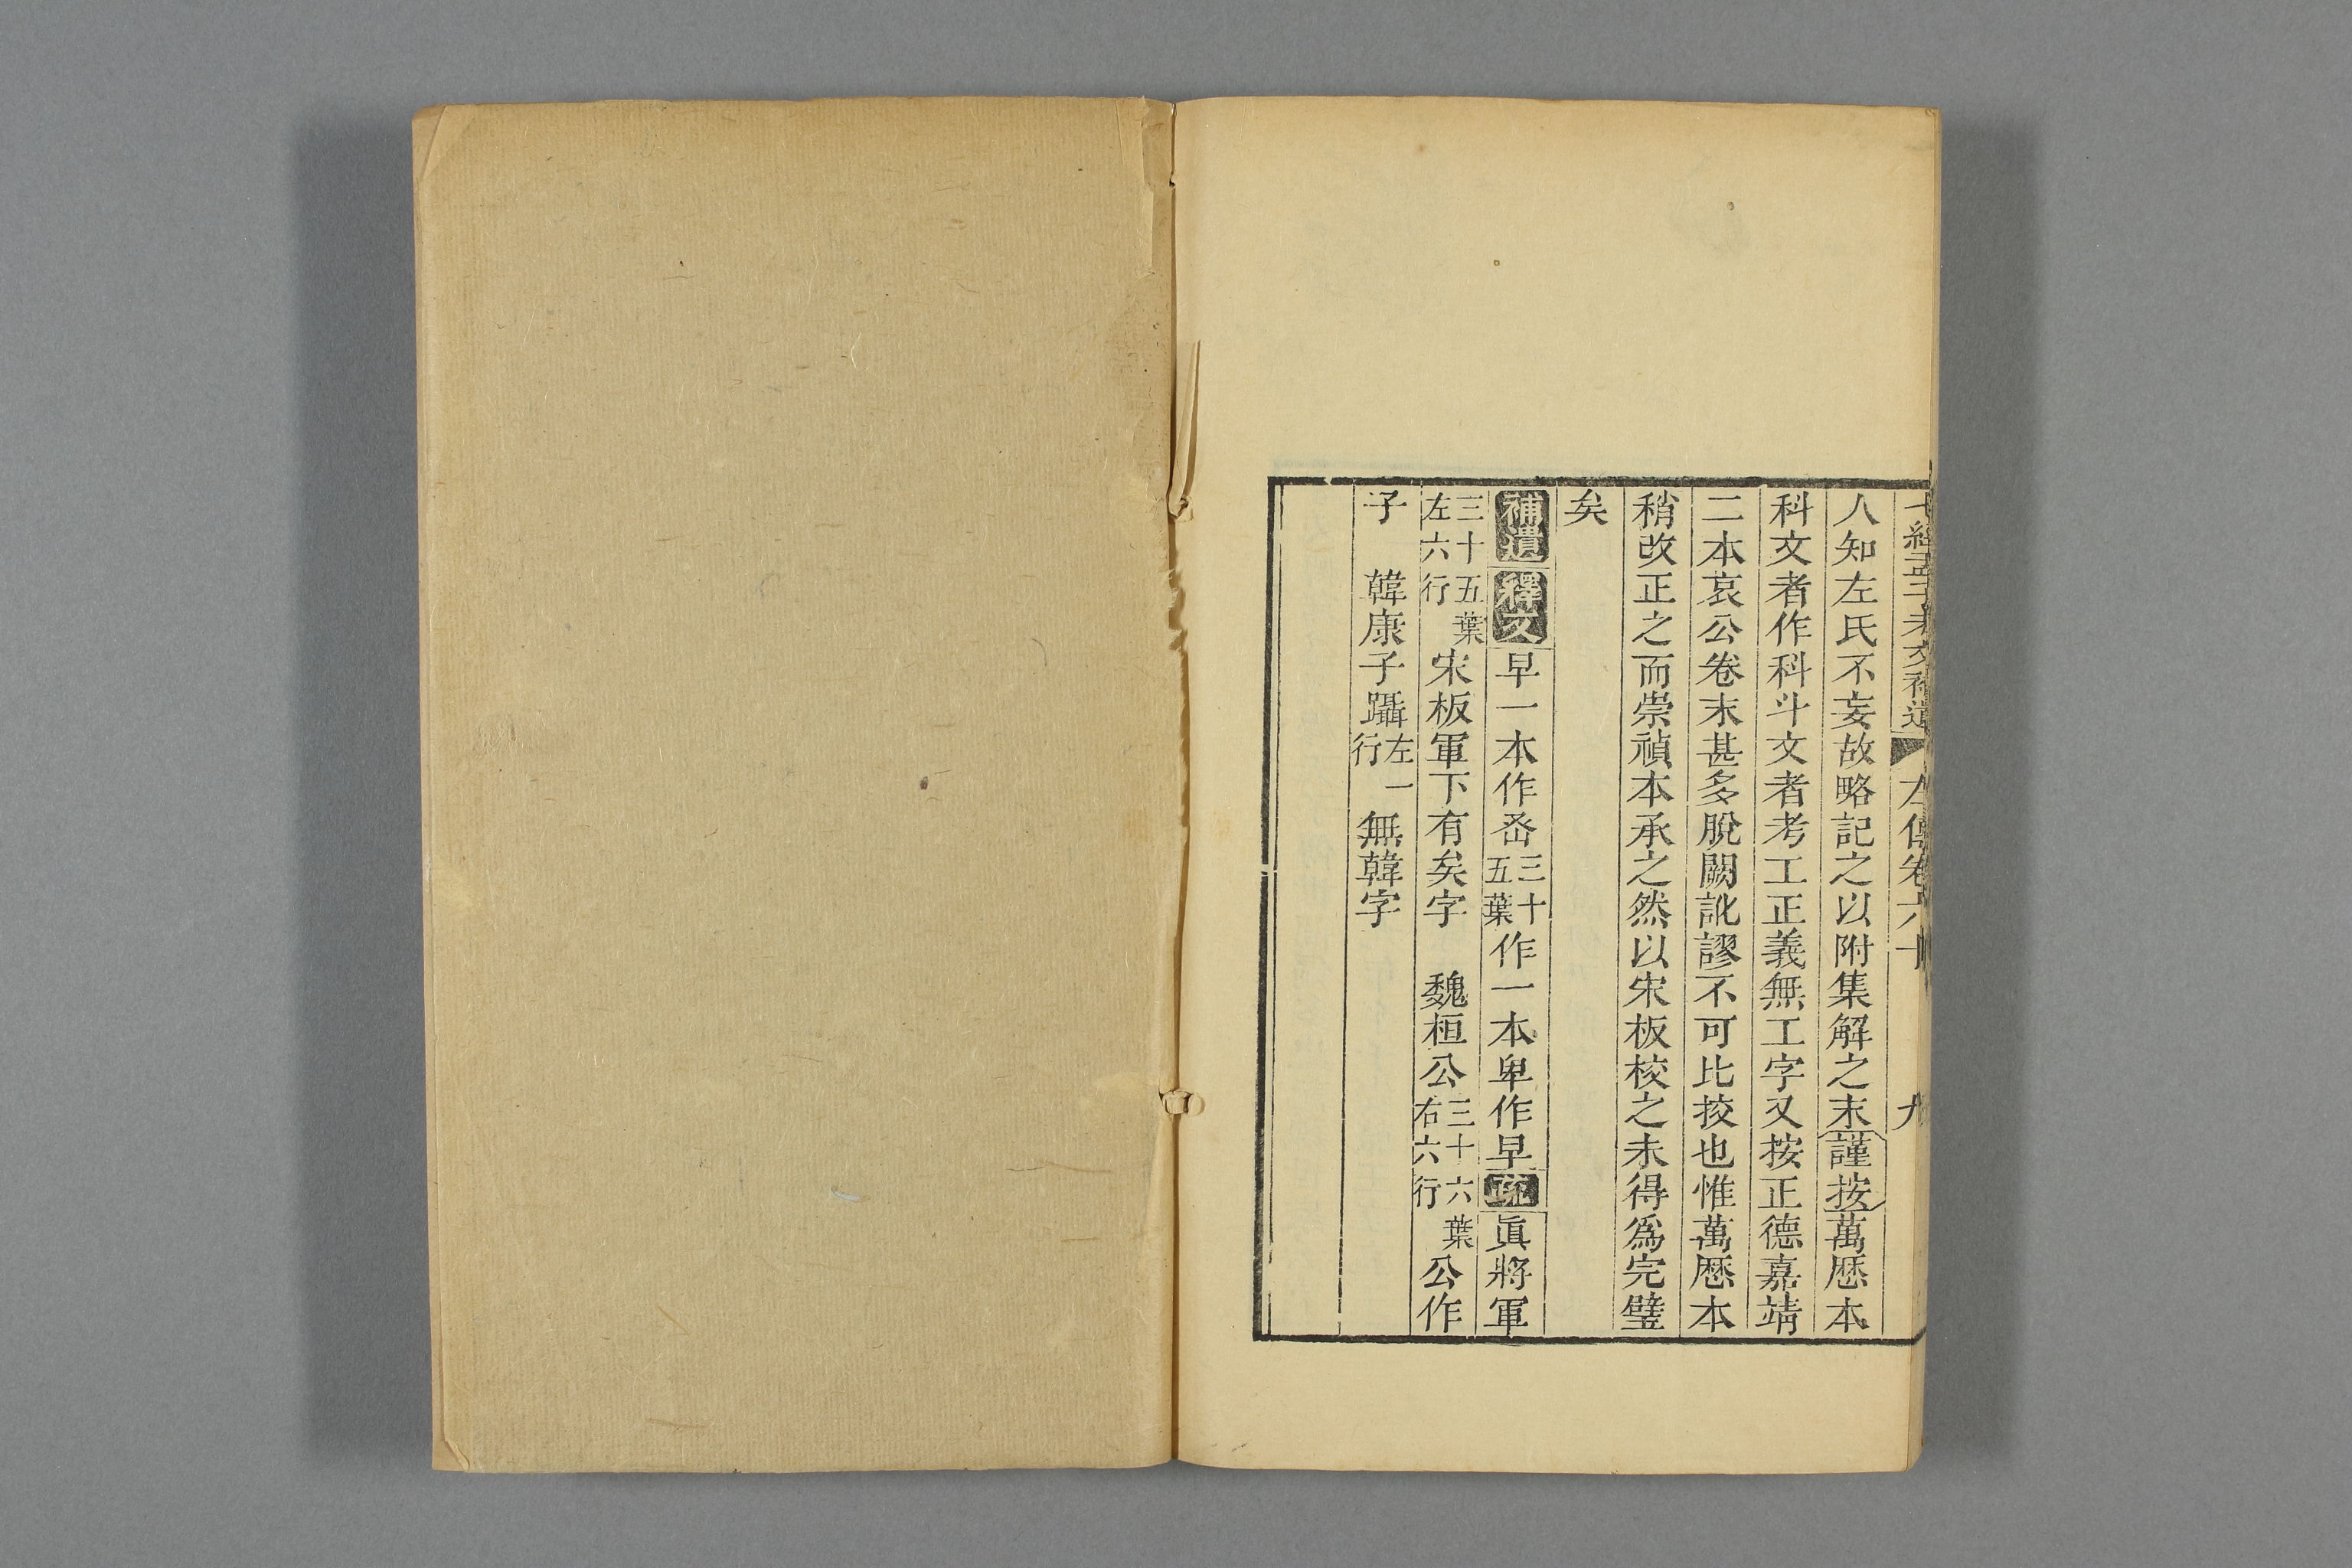 七經孟子考文補遺 左傳卷六十 九
人知左氏不妄故略記之以附集解之末謹按萬厯本
科文者作科斗文者考工正義無工字又按正德嘉靖
二本哀公卷末甚多脫闕訛謬不可比挍也惟萬厯本
稍改正之而崇禎本承之然以宋板校之未得爲完璧
矣
補遺 釋文 早一本作𣅀三十五葉作一本卑作早 疏 眞將軍
三十五葉左六行宋板軍下有矣字 魏桓公三十六葉右六行公作
子 韓康子躡左一行無韓字